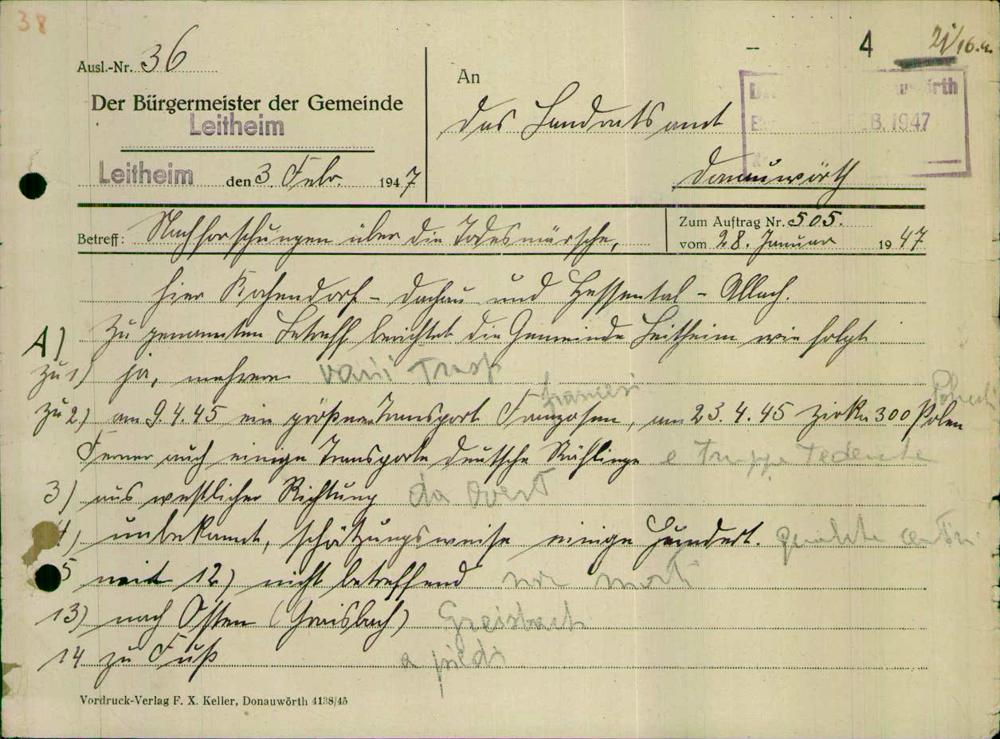 38
4
Ausl.-Nr. 36
Der Bürgermeister der Gemeinde
Leitheim
Leitheim den 3. Febr. 1947
An
das Landratsamt
Donauwörth
B. 1947
Betreff: Nachforschungen über die Todesmärsche,
Zum Auftrag Nr. 505.
vom 28. Januar 1947
hier Kochendorf - Dachau und Hessental - Allach.
A) Zu genannten Betreff berichtet die Gemeinde Leitheim wie folgt
zu 1) ja, mehrere varii Trasp
francesi
zu 2) am 9.4.45 ein größerer Transport Franzosen, am 23.4.45 zirka 300 Polen
Ferner auch einige Transporte deutsche Häftlinge e truppe tedesche
3) aus westlicher Richtung da ovest
4) unbekannt, schätzungsweise einige Hundert. qualche
5 mit 12) nicht betreffend non morti
13) nach Osten (Graisbach) Greisbach
14 zu Fuß a piedi
Vordruck-Verlag F. X. Keller, Donauwörth 4138/45